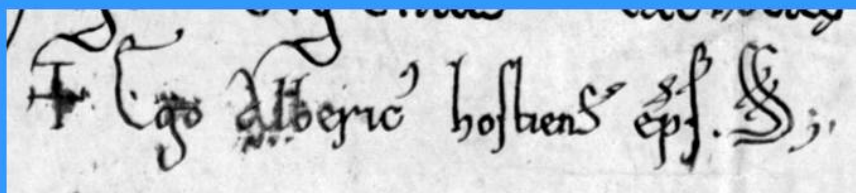 ✝ Ego Alberic' hostiens' ep̄s. SS;